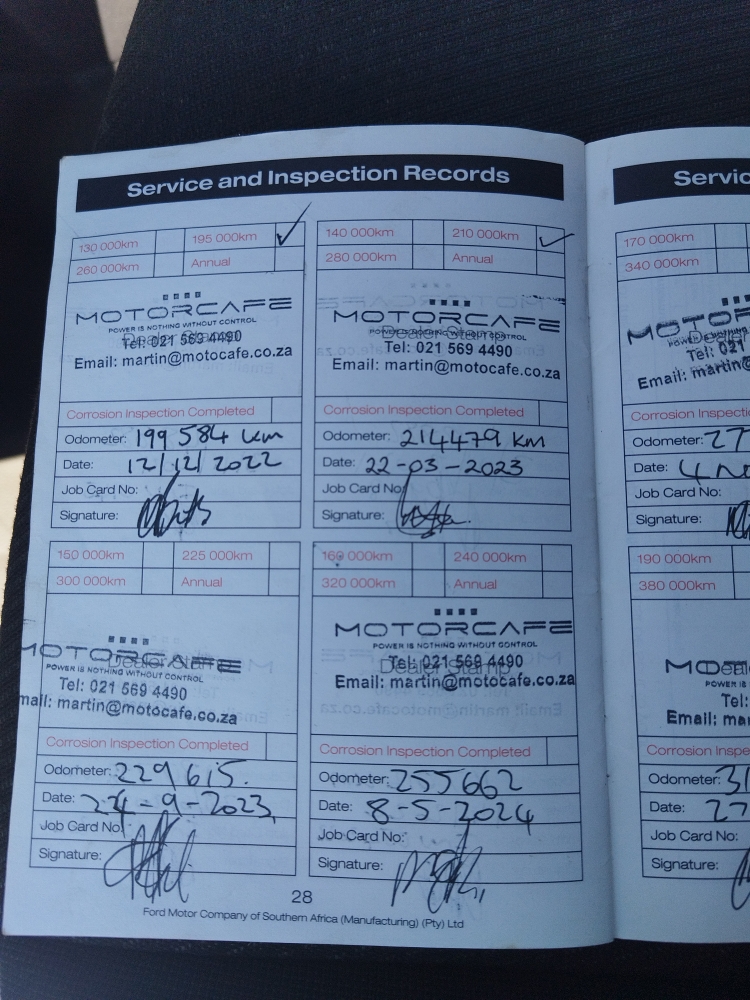 Service and Inspection Records
130 000km 195 000km ✓
260 000km Annual
MOTORCAFE
POWER IS NOTHING WITHOUT CONTROL
Dealer Stamp
Tel: 021 569 4490
Email: martin@motocafe.co.za
Corrosion Inspection Completed
Odometer: 199 584 km
Date: 12/12/2022
Job Card No:
Signature:
140 000km 210 000km ✓
280 000km Annual
MOTORCAFE
POWER IS NOTHING WITHOUT CONTROL
Dealer Stamp
Tel: 021 569 4490
Email: martin@motocafe.co.za
Corrosion Inspection Completed
Odometer: 214479 km
Date: 22-03-2023
Job Card No:
Signature:
150 000km 225 000km
300 000km Annual
MOTORCAFE
POWER IS NOTHING WITHOUT CONTROL
Dealer Stamp
Tel: 021 569 4490
mail: martin@motocafe.co.za
Corrosion Inspection Completed
Odometer: 229615.
Date: 24-9-2023
Job Card No:
Signature:
160 000km 240 000km
320 000km Annual
MOTORCAFE
POWER IS NOTHING WITHOUT CONTROL
Dealer Stamp
Tel: 021 569 4490
Email: martin@motocafe.co.za
Corrosion Inspection Completed
Odometer: 255662
Date: 8-5-2024
Job Card No:
Signature:
28
Ford Motor Company of Southern Africa (Manufacturing) (Pty) Ltd
Servic
170 000km
340 000km
MOTORF
Dealer
Tel: 021
Email: martin@
Corrosion Inspecti
Odometer: 27
Date: 4 No
Job Card No:
Signature:
190 000km
380 000km
MO
Deale
POWER IS
Tel:
Email: mar
Corrosion Inspe
Odometer: 31
Date: 27
Job Card No:
Signature: